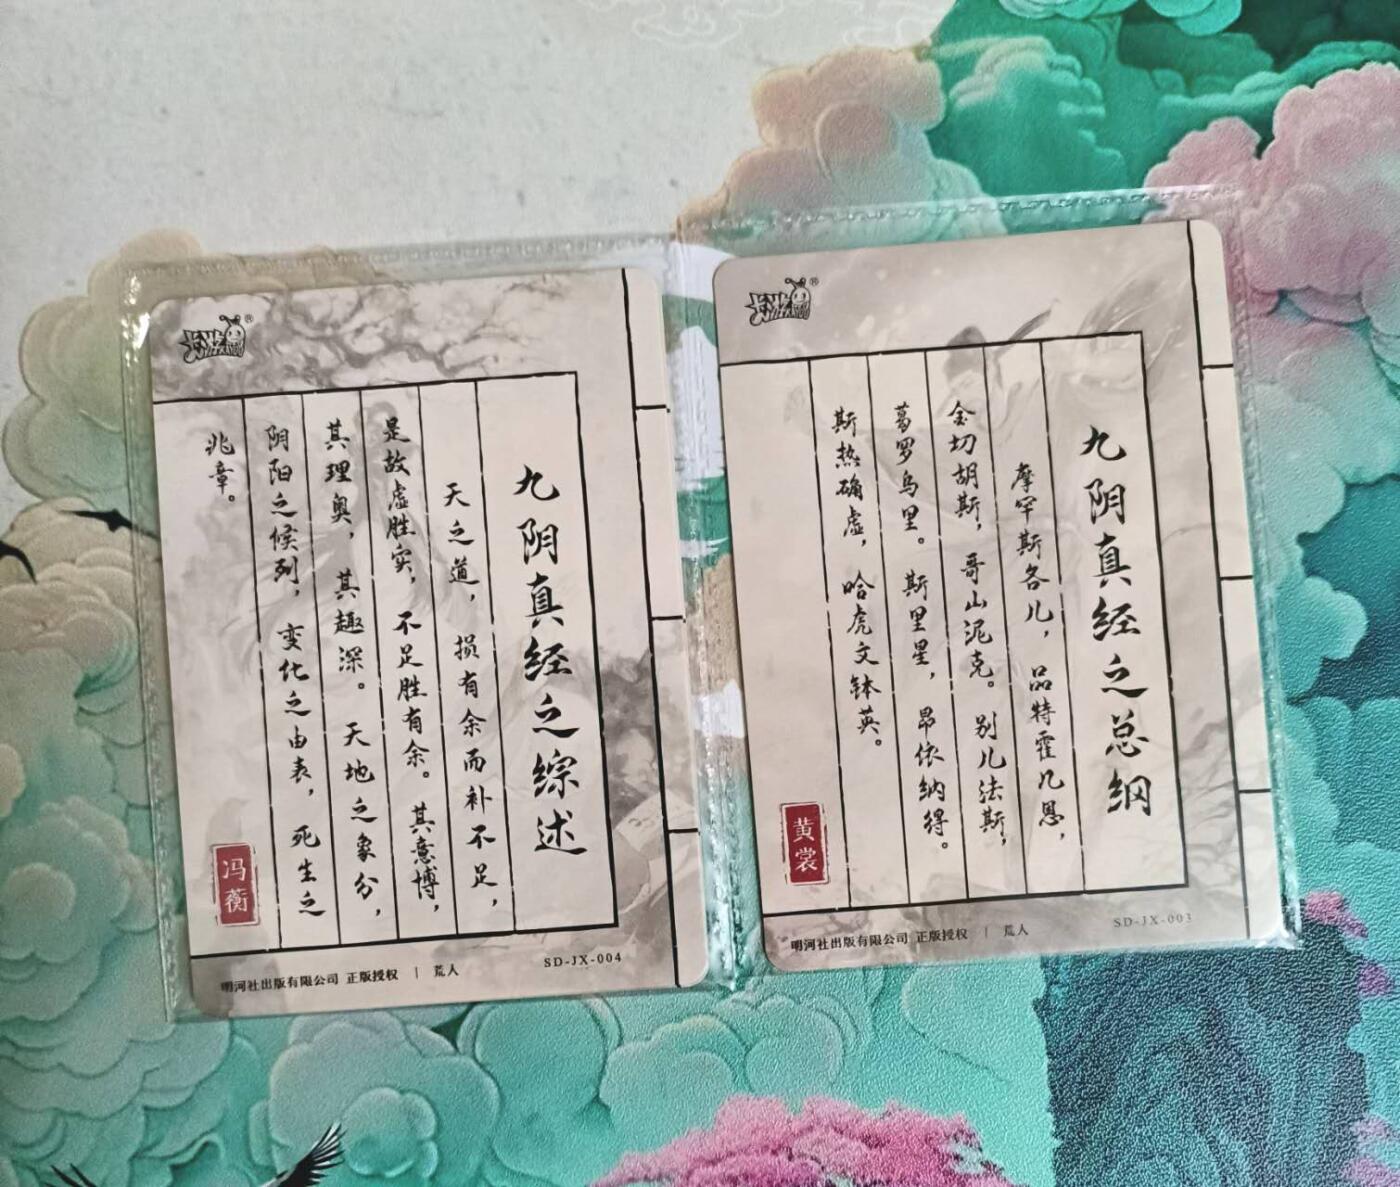 卡游
KAYOU
九阴真经之综述
天之道，损有余而补不足，
是故虚胜实，不足胜有余。其意博，
其理奥，其趣深。天地之象分，
阴阳之候列，变化之由表，死生之
兆章。
冯蘅
明河社出版有限公司 正版授权 | 荒人
SD-JX-004
卡游
九阴真经之总纲
摩罕斯各儿，品特霍几恩，
金切胡斯，哥山泥克。别儿法斯，
葛罗乌里。斯里星，昂依纳得。
斯热确虚，哈虎文钵英。
黄裳
明河社出版有限公司 正版授权 | 荒人
SD-JX-003